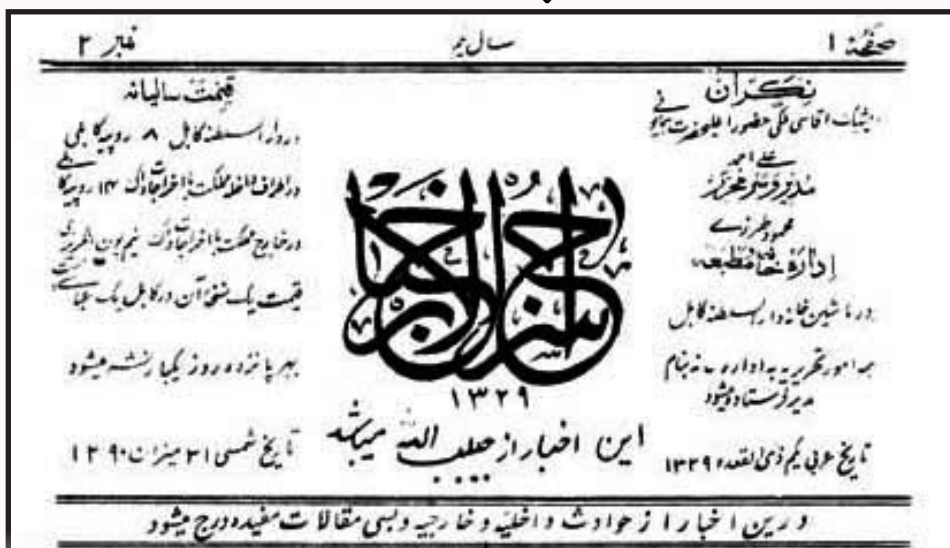 صحفهٔ ۱
سال ۱
نمبر ۲
نگران
ایشیک آقاسی ملکی حضور اعلیحضرت همایونی
علی احمد
مدیر و سرمحرر
محمود طرزی
ادارهٔ خانهٔ مطبعه
در ماشین خانه دارالسلطنه کابل
همه امور تحریریه به اداره بنام
مدیر فرستاده میشود
تاریخ عربی یکم ذی القعده ۱۳۲۹
سراج الاخبار
۱۳۲۹
این اخبار از حبیب الله میباشد
قیمت سالیانه
در دارالسلطنه کابل ۸ روپیه کابلی
در اطراف داخله مملکت با اخراجات داک ۱۴ روپیه کابلی
در خارج مملکت با اخراجات داک نیم پون انگریزی
قیمت یک نسخهٔ آن در کابل یک عباسی است
بهر پانزده روز یکبار نشر میشود
تاریخ شمسی ۳۱ میزان ۱۲۹۰
درین اخبار از حوادث داخلیه و خارجیه و بسی مقالات مفیده درج میشود